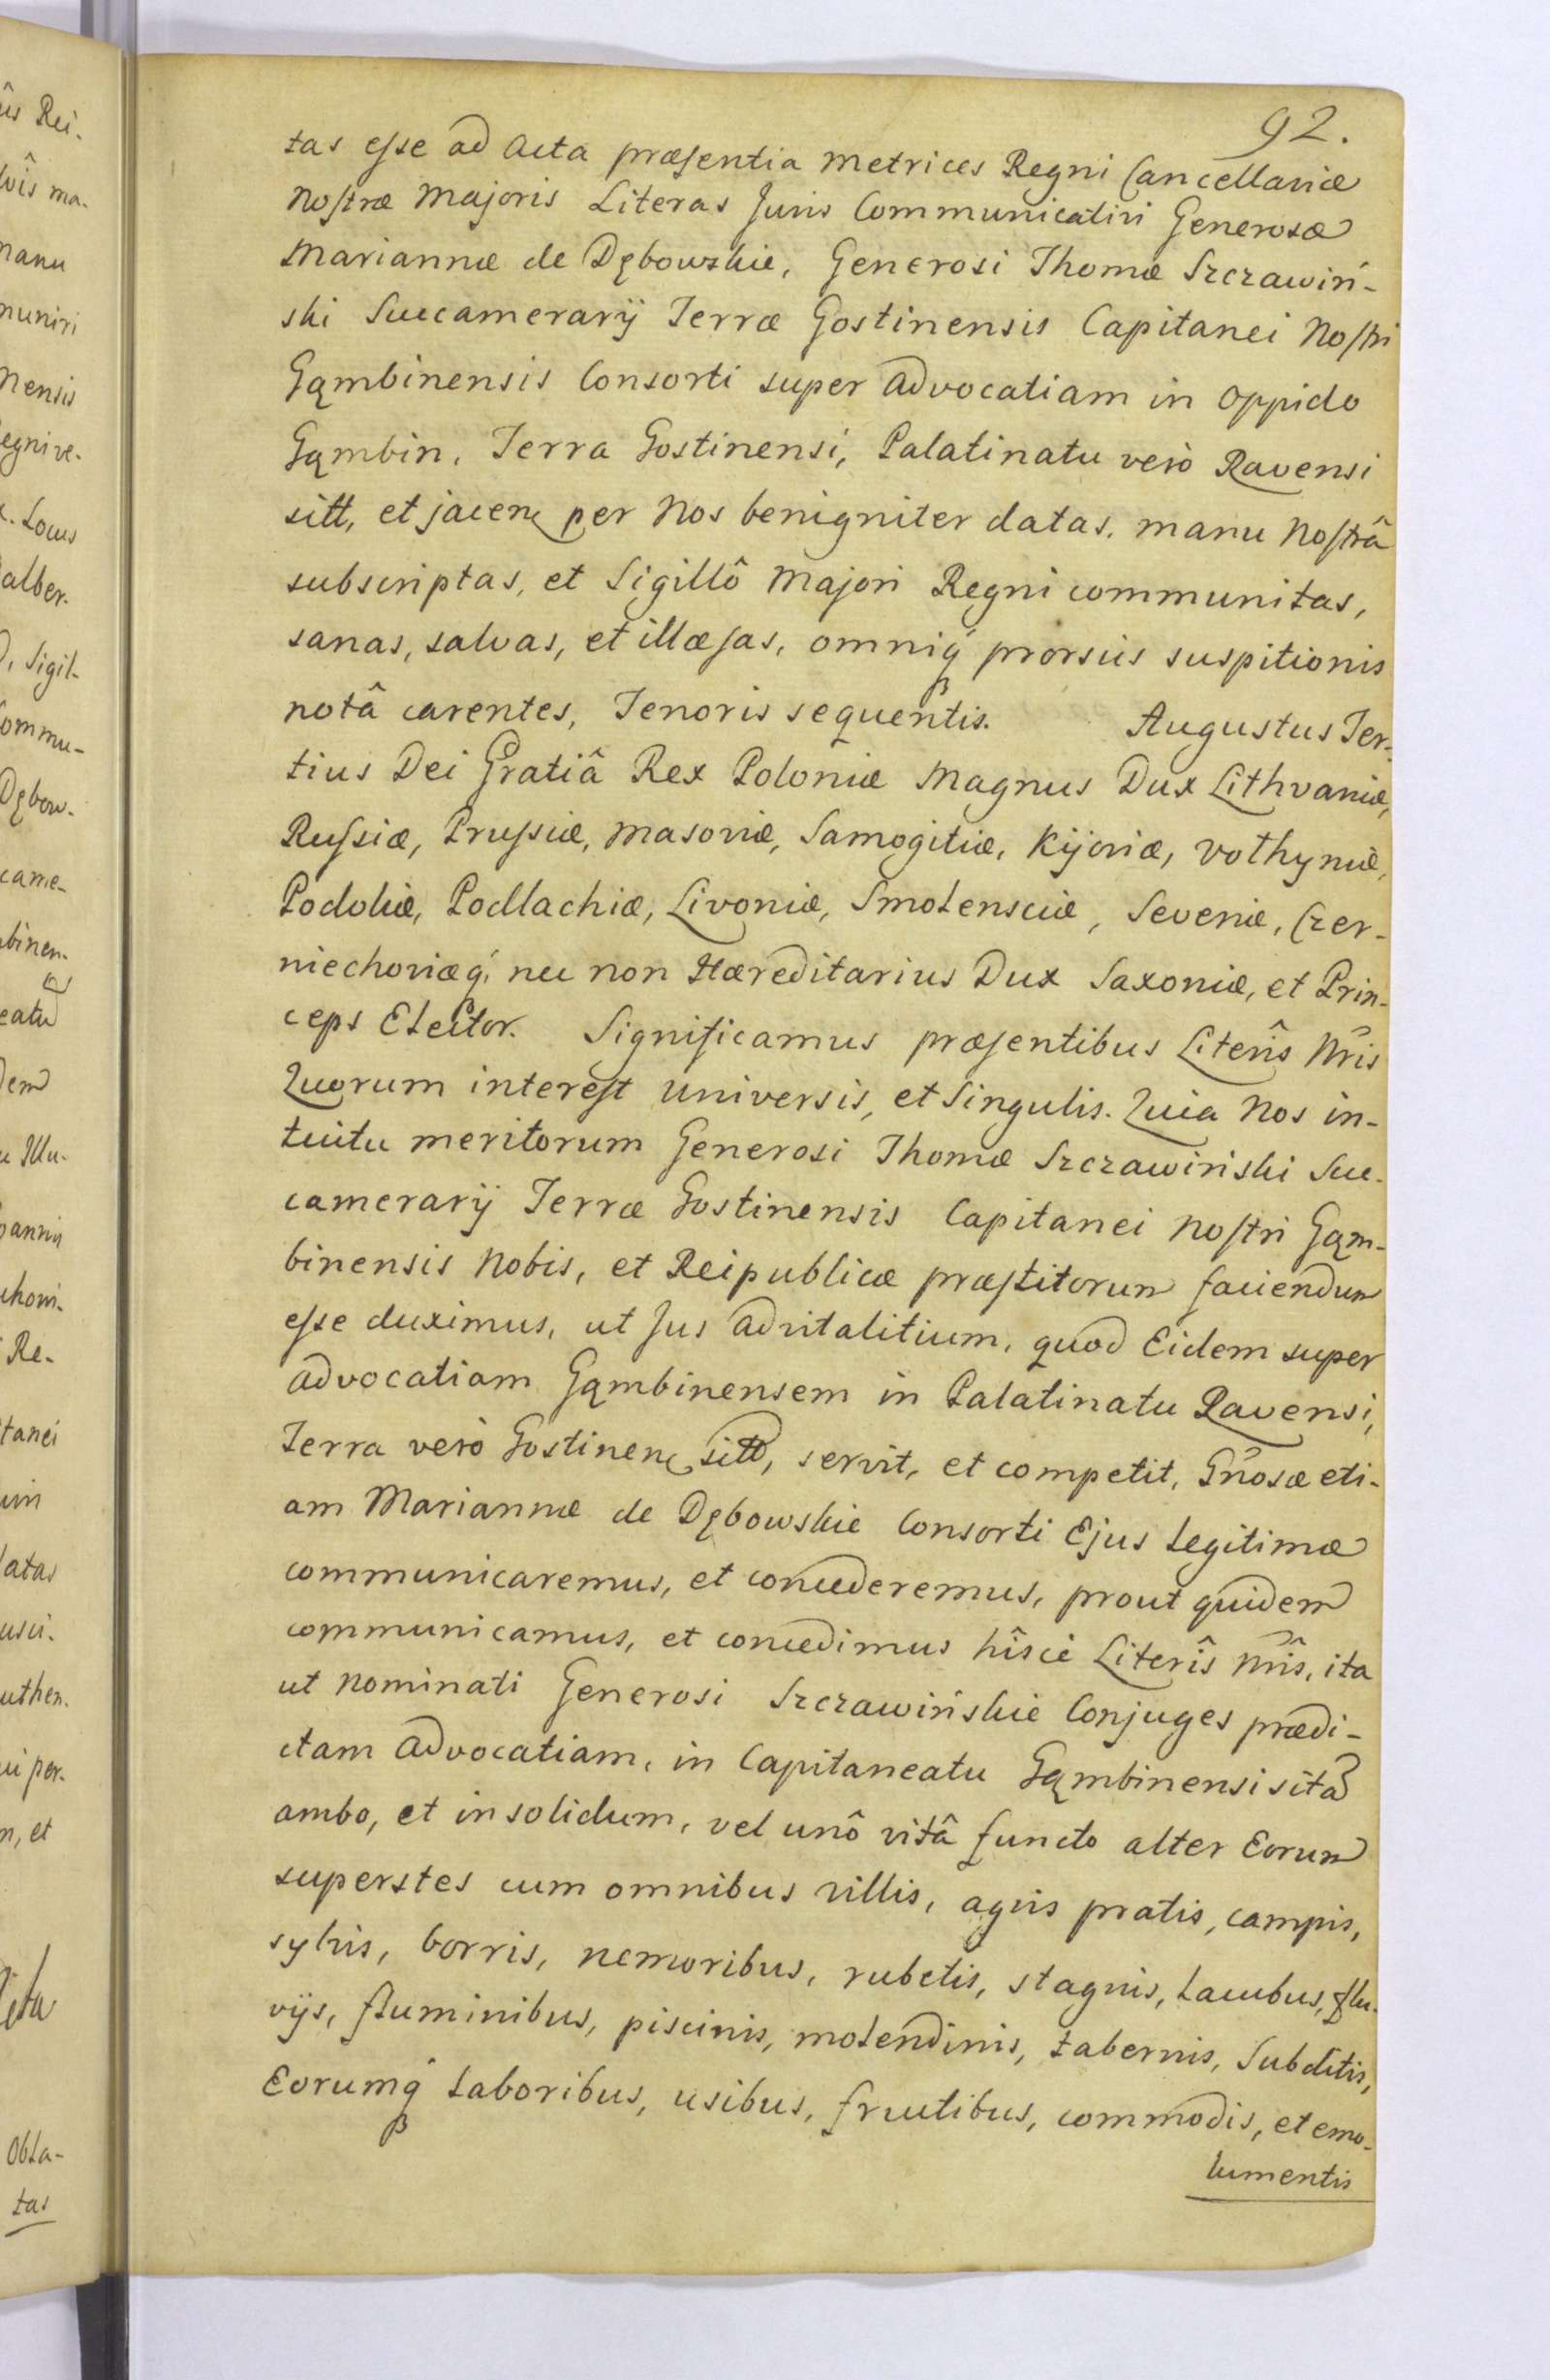 92.
tas esse ad Acta præsentia Metrices Regni Cancellariæ
Nostræ Majoris Literas Juris Communicativi Generosæ
Mariannæ de Dębowskie, Generosi Thomæ Szczawiń-
ski Succamerarij Terræ Gostinensis Capitanei Nostri
Gąmbinensis Consorti super Advocatiam in Oppido
Gąmbin, Terra Gostinensi, Palatinatu verò Ravensi
sitt, et jacen per Nos benigniter datas, manu Nostrâ
subscriptas, et Sigillô Majori Regni communitas,
sanas, salvas, et illæsas, omniq́ prorsùs suspitionis
notâ carentes, Tenoris sequentis. Augustus Ter-
tius Dei Gratiâ Rex Poloniæ Magnus Dux Lithvaniæ,
Russiæ, Prussiæ, Masoviæ, Samogitiæ, Kijoviæ, Volhyniæ,
Podoliæ, Podlachiæ, Livoniæ, Smolensciæ, Severiæ, Czer-
niechoviæq́, nec non Hæreditarius Dux Saxoniæ, et Prin-
ceps Elector. Significamus præsentibus Literîs Nr̃is
Quorum interest Universis, et Singulis. Quia Nos in-
tuitu meritorum Generosi Thomæ Szczawiński Suc-
camerarij Terræ Gostinensis Capitanei Nostri Gąm-
binensis Nobis, et Reipublicæ præstitorum faciendum
esse duximus, ut Jus advitalitium, quod Eidem super
Advocatiam Gąmbinensem in Palatinatu Ravensi,
Terra verò Gostinen sitt, servit, et competit, Gn̂osæ eti-
am Mariannæ de Dębowskie Consorti Ejus legitimæ
communicaremus, et concederemus, prout quidem
communicamus, et concedimus hîsce Literîs Nr̃îs, ita
ut Nominati Generosi Szczawińskie Conjuges prædi-
ctam Advocatiam, in Capitaneatu Gąmbinensi sitã
ambo, et in solidum, vel unô vitâ functo alter Eorum
superstes cum omnibus villis, agris pratis, campis,
sylvis, borris, nemoribus, rubetis, stagnis, lacubus, flu-
vijs, fluminibus, piscinis, molendinis, tabernis, Subditis,
Eorumq́ laboribus, usibus, fructibus, commodis, et emo-
lumentis